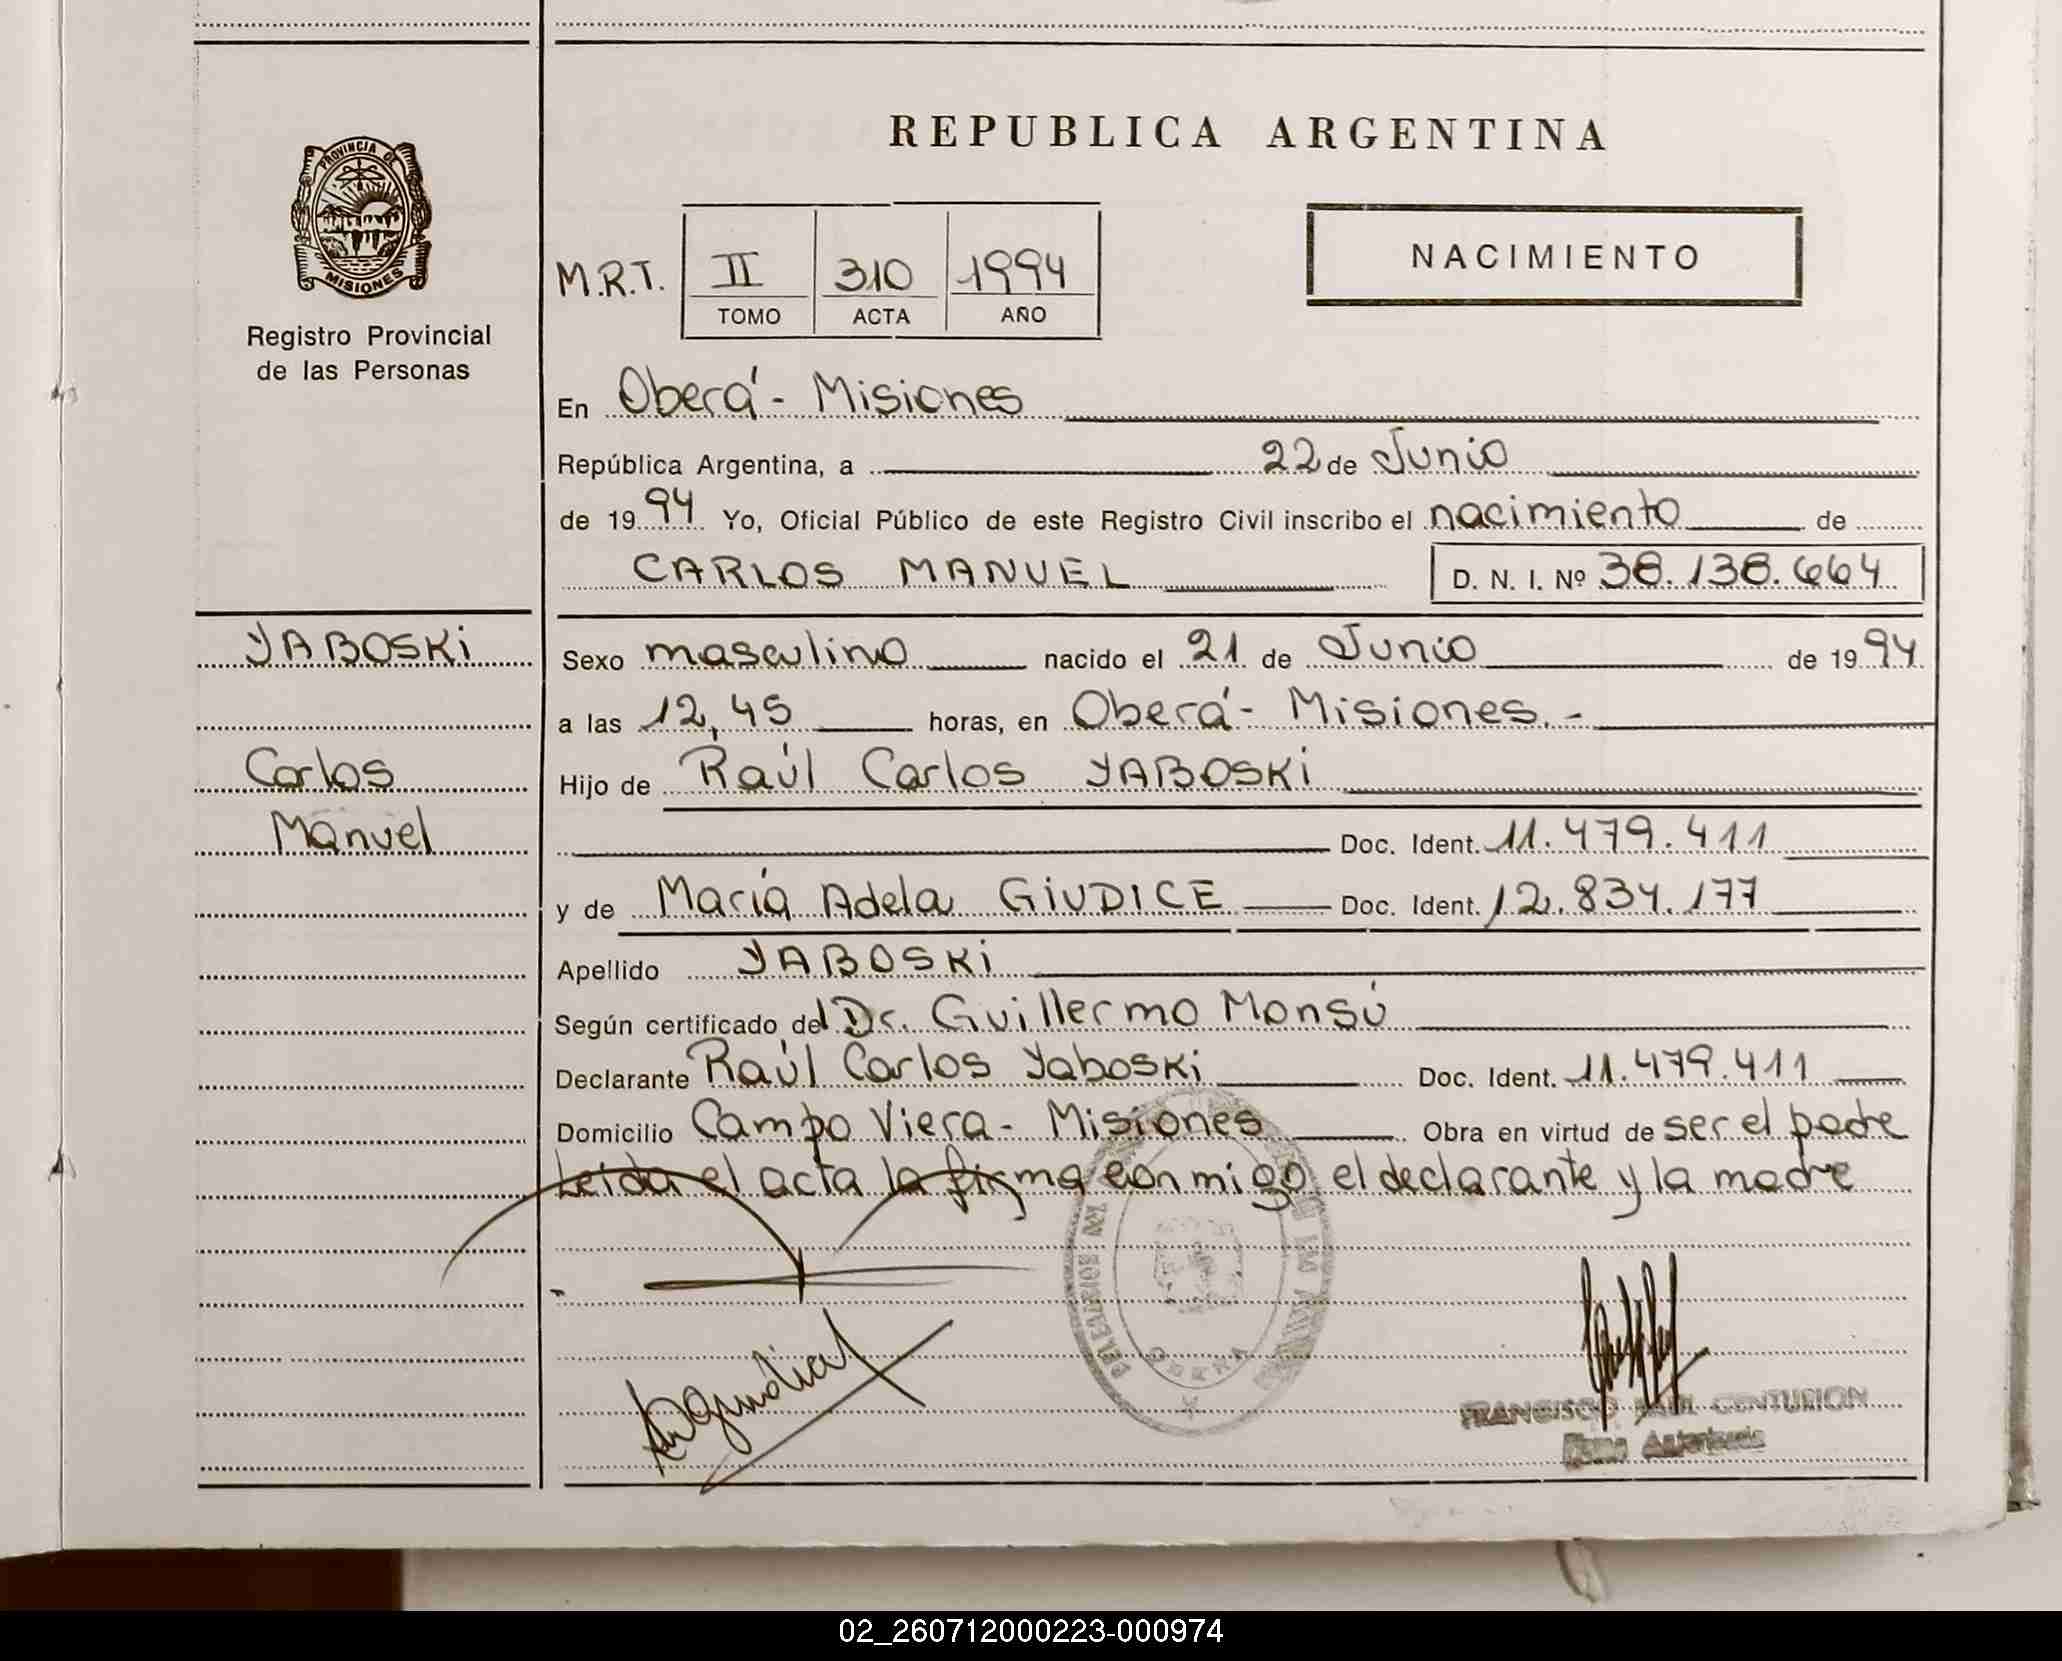 REPUBLICA ARGENTINA
PROVINCIA DE
MISIONES
Registro Provincial
de las Personas
NACIMIENTO
M.R.T. II 310 1994
TOMO ACTA AÑO
En Oberá - Misiones
República Argentina, a 22 de Junio
de 1994 Yo, Oficial Público de este Registro Civil inscribo el nacimiento de
CARLOS MANUEL D. N. I. Nº 38.138.664
YABOSKi
Sexo masculino nacido el 21 de Junio de 1994
a las 12,45 horas, en Oberá - Misiones. -
Carlos
Manuel
Hijo de Raúl Carlos YABOSKi
Doc. Ident. 11.479.411
y de María Adela GiUDICE Doc. Ident. 12.834.177
Apellido YABOSKi
Según certificado del Dr. Guillermo Monsú
Declarante Raúl Carlos Yaboski Doc. Ident. 11.479.411
Domicilio Campo Viera - Misiones Obra en virtud de ser el padre
Leida el acta la firma conmigo el declarante y la madre
OBERA
FRANCISCO RAUL CENTURION
Firma Autorizada
02_260712000223-000974